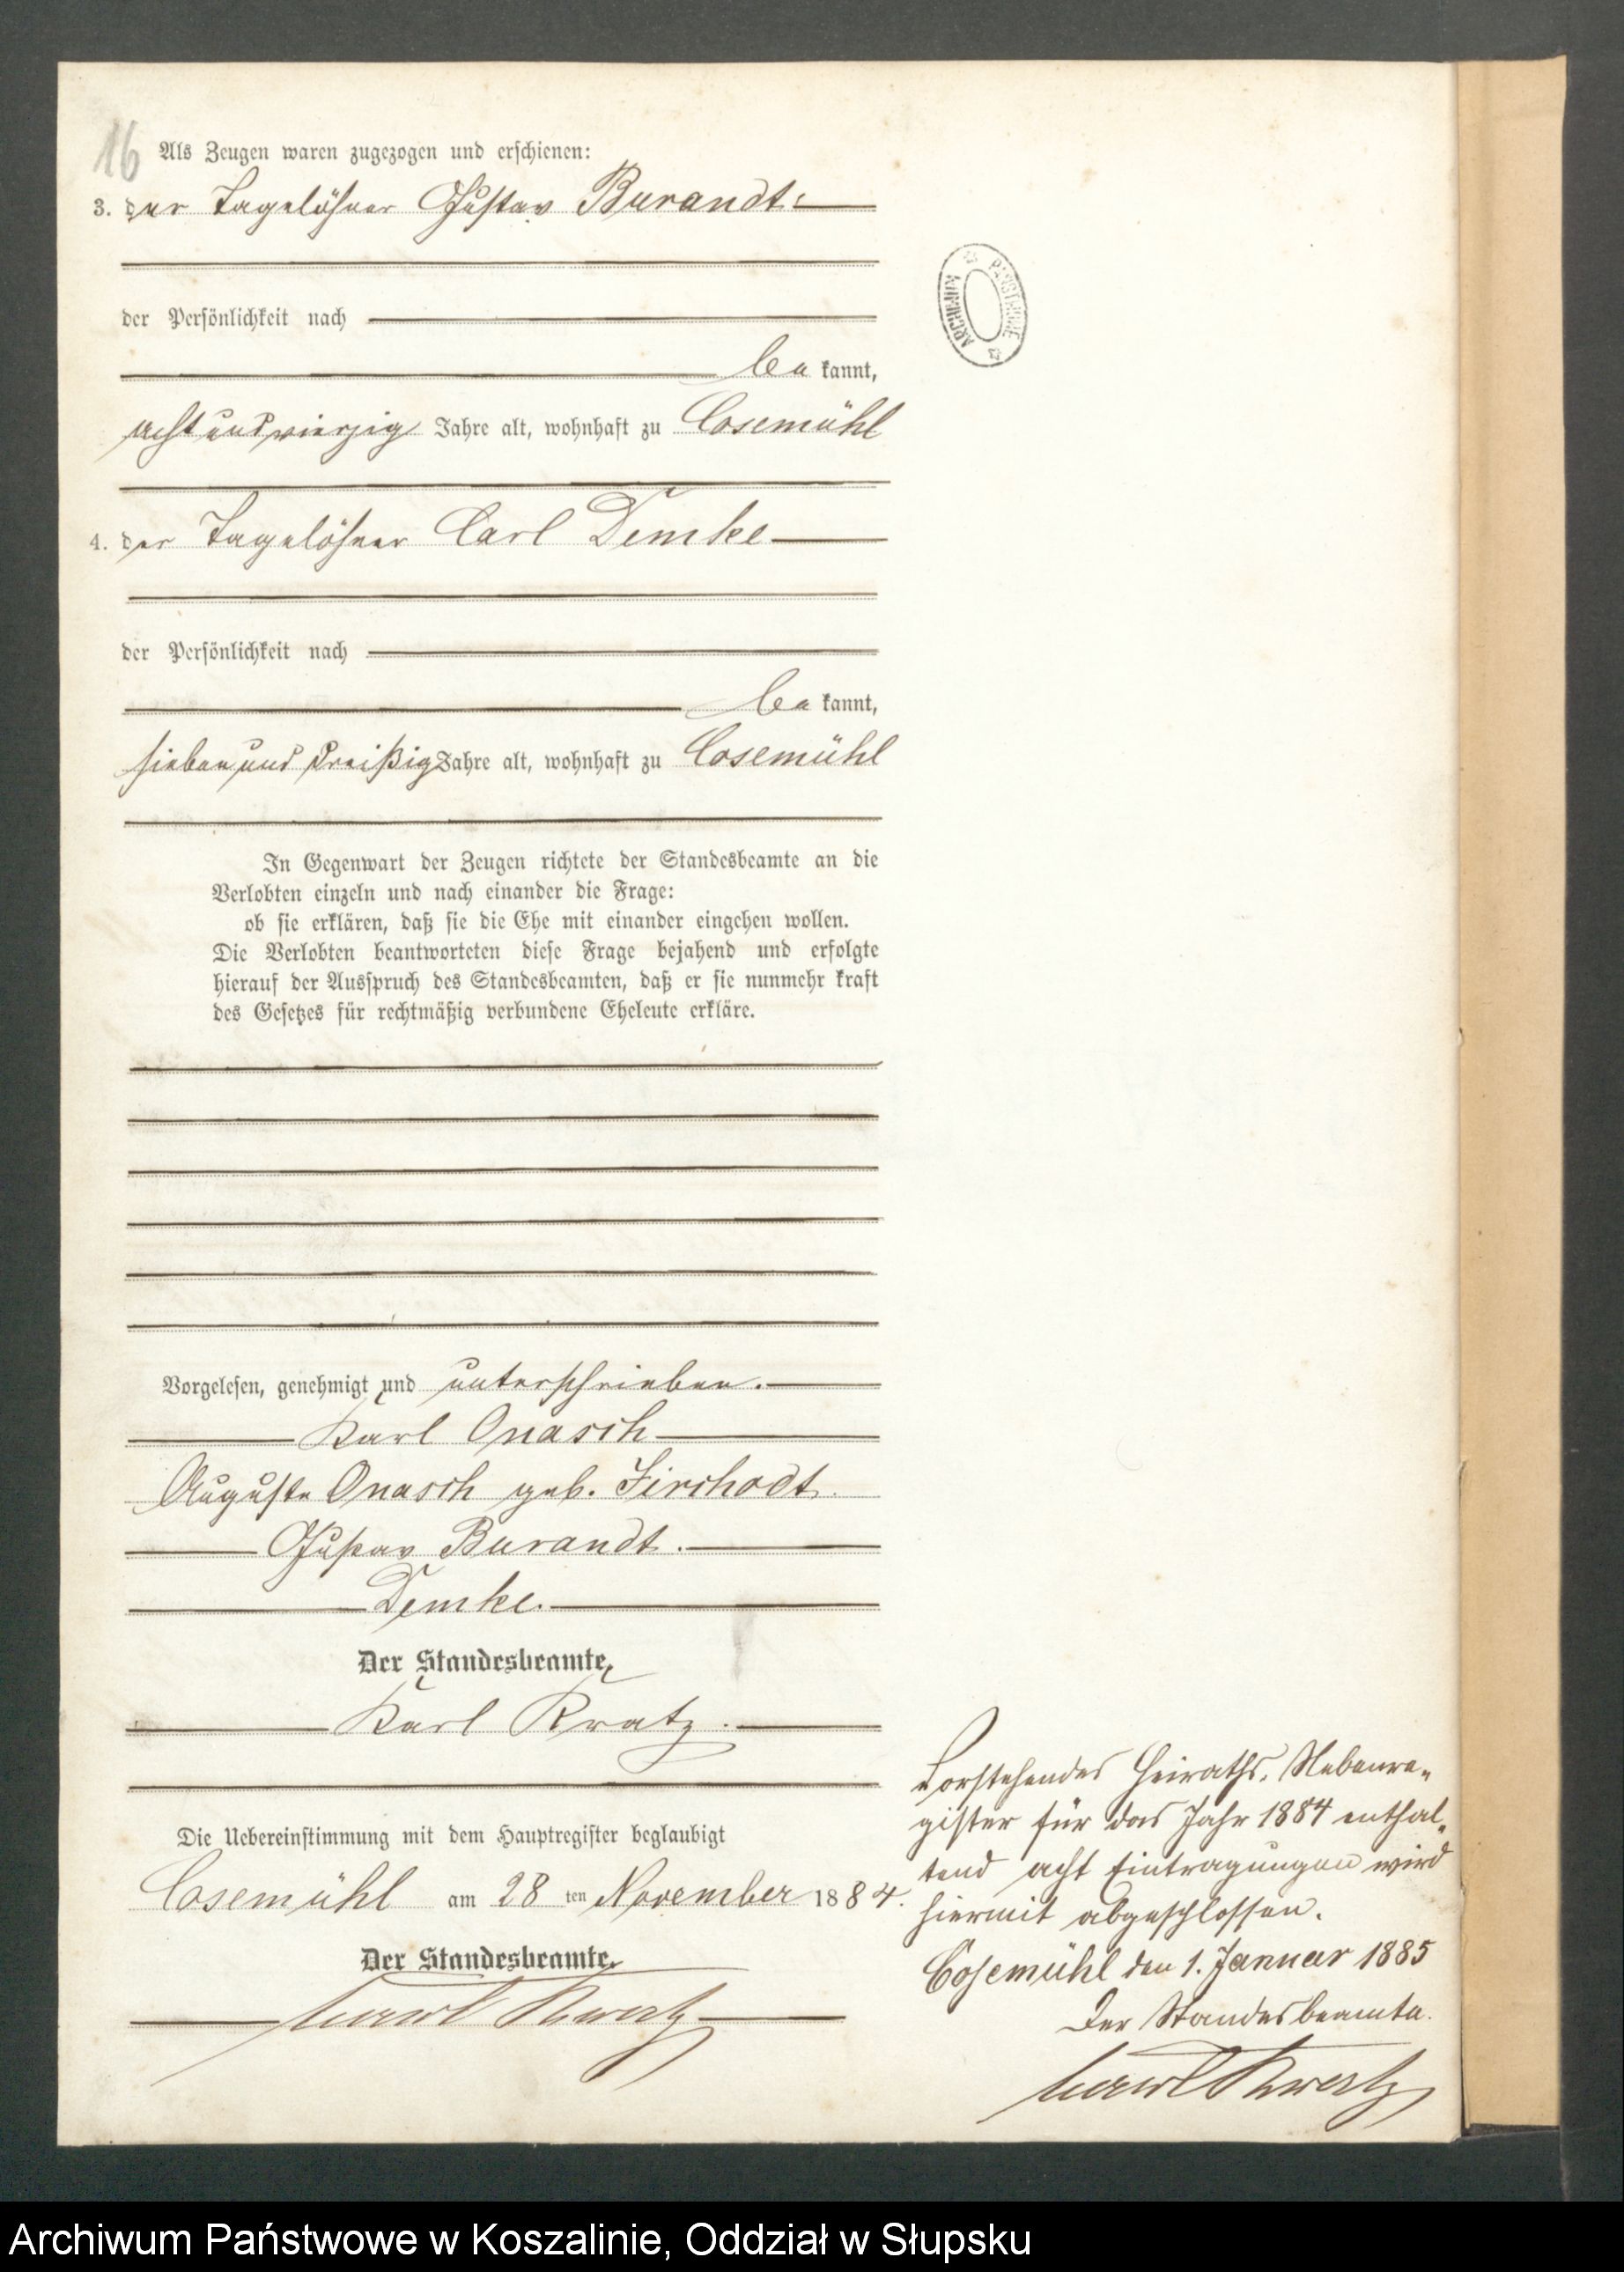 16
Als Zeugen waren zugezogen und erschienen:
3. der Tagelöhner Gustav Burandt
der Persönlichkeit nach
be kannt,
acht und vierzig Jahre alt, wohnhaft zu Cosemühl
4. der Tagelöhner Carl Demke
der Persönlichkeit nach
be kannt,
sieben und dreißig Jahre alt, wohnhaft zu Cosemühl
In Gegenwart der Zeugen richtete der Standesbeamte an die
Verlobten einzeln und nach einander die Frage:
ob sie erklären, daß sie die Ehe mit einander eingehen wollen.
Die Verlobten beantworteten diese Frage bejahend und erfolgte
hierauf der Ausspruch des Standesbeamten, daß er sie nunmehr kraft
des Gesetzes für rechtmäßig verbundene Eheleute erkläre.
Vorgelesen, genehmigt und unterschrieben.
Karl Onasch
Auguste Onasch geb.
Gustav Burandt.
Demke.
Der Standesbeamte,
Karl Kratz.
Die Uebereinstimmung mit dem Hauptregister beglaubigt
Cosemühl am 28 ten November 1884.
Der Standesbeamte.
Carl Kratz
Vorstehendes Heiraths-Nebenre-
gister für das Jahr 1884 enthal-
tend acht Eintragungen wird
hiermit abgeschlossen.
Cosemühl den 1. Januar 1885
Der Standesbeamte.
Carl Kratz
ARCHIWUM PAŃSTWOWE
Archiwum Państwowe w Koszalinie, Oddział w Słupsku